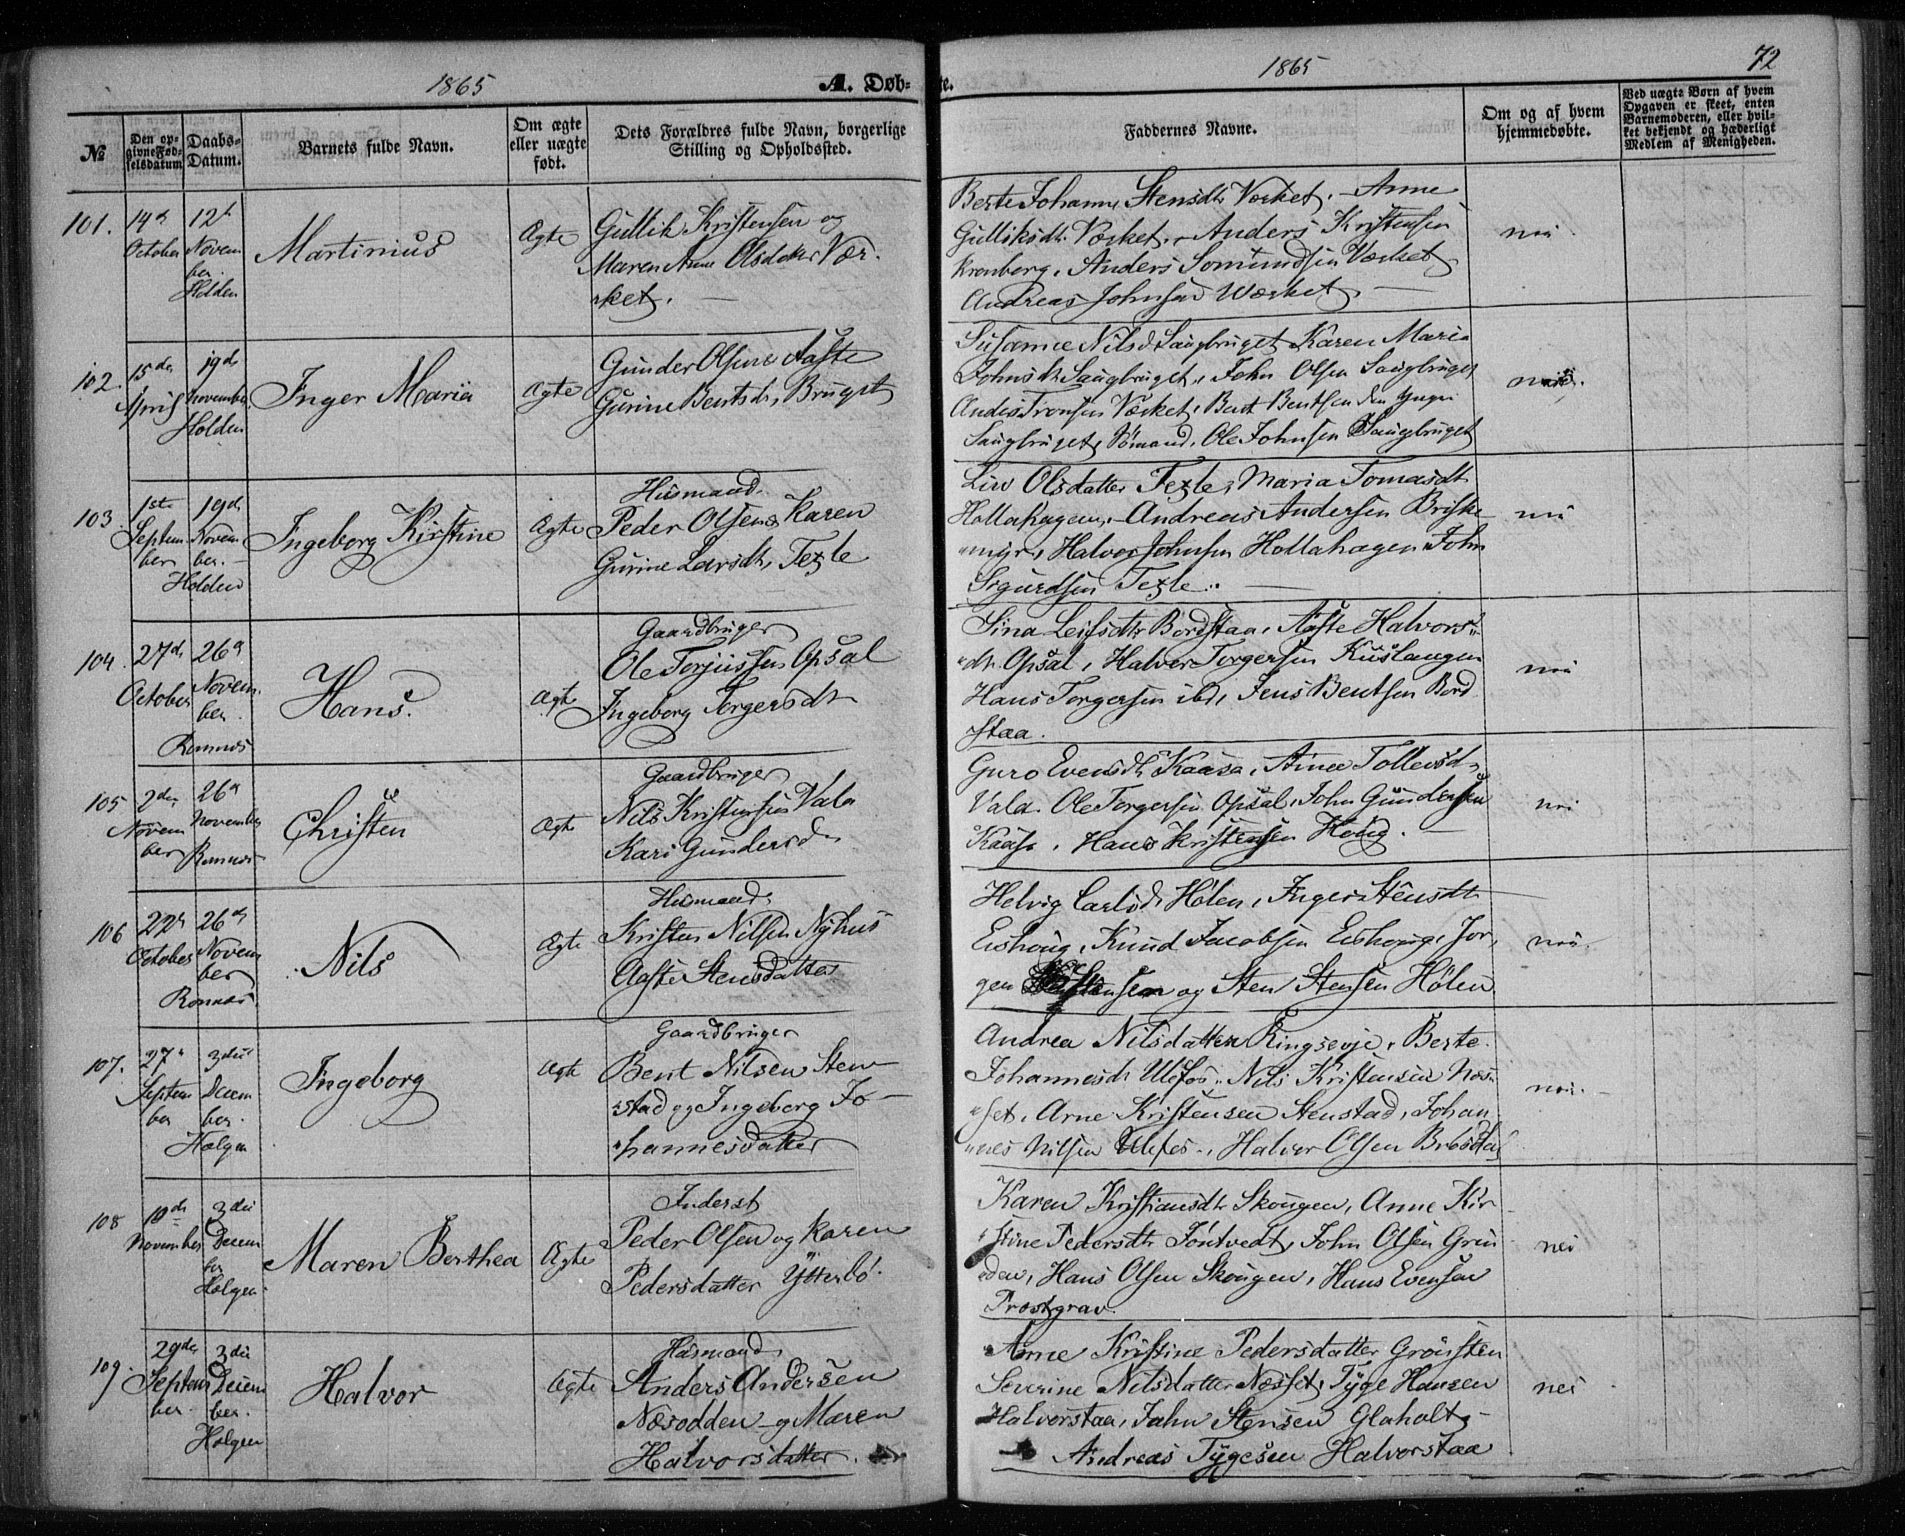 1865
A. Døb-
te.
1865
72
№
Den op-
givne Fød-
selsdatum
Daabs-
Datum.
Barnets fulde Navn.
Om ægte
eller uægte
født.
Dets Forældres fulde Navn, borgerlige
Stilling og Opholdssted.
Faddernes Navne.
Om og af hvem
hjemmedøbte.
Ved uægte Børn af hvem
Opgaven er skeet, enten
Barnemoderen, eller hvil-
ket bekjendt og hæderligt
Medlem af Menigheden.
101.
14d
October
12t
Novem
ber.
Holden
Martinius
Ægte
Gullik Kristensen og
Maren Anne Olsdatter Vær-
rket.
Berte Johanne Stensdtr Værket, Anne
Gulliksdtr Værket, Anders Kristensen
Kronborg, Anders Somundsen Værket
Andreas Johnsen Wærket.
nei.
102.
15de
April
19de
November
Holden
Inger Maria
Ægte
Gunder Olsen Aaste
Gurine Bentsdr, Bruget
Susanne Nilsd Saugbruget Karen Maria
Johnsdr Saugbruget, John Olsen Saugbruget
Anders Tronsen Værket, Bent Bentsen den yngre
Saugbruget, Sømand, Ole Johnsen Saugbruget
103.
1ste
Septem
ber
19de
Novem-
ber.
Holden
Ingeborg Kirstine
Ægte
Husmand.
Peder Olsen & Karen
Gurine Larsdtr, Texle
Liv Olsdatter Texle, Maria Tomasdtr
Hollahagen, Andreas Andersen Briske
myr, Halvor Johnsen Hollahagen, John
Sigurdsen Texle.
nei
104.
27de
October
26d
Novem
ber.
Romnes
Hans.
Ægte
Gaardbruger
Ole Torjussen Opsal
Ingeborg Torgersdtr
Sina Leifsdtr Bordstaa, Aaste Halvors-
dtr Opsal, Halvor Torgersen Kuslaugen
Hans Torgersen ibd, Jens Bentsen Bord
staa.
nei
105
2den
Novem
ber
26d
November
Romnes
Christen
Ægte
Gaardbruger
Nils Kristensen Vala
Kari Gundersd
Guro Evensdtr Kaasa, Anne Tollevsd
Vala. Ole Torgersen Opsal, John Gundersen
Kaasa, Hans Kristensen Houg.
nei
106
22d
October
26de
Novem
ber
Romnes
Nils
Ægte
Husmand
Kristen Nilsen Nyhus
Aaste Stensdatter
Helvig Carlsd Hølen, Inger Stensdtr
Eishoug, Knud Jacobsen Eishoug, Jør-
gen Stensen og Sten Stensen Hølen.
nei.
107.
27d
Septem
ber
3die
Decem
ber.
Helgen
Ingeborg
Ægte
Gaardbruger
Bent Nilsen Sten-
stad og Ingeborg Jo-
hannesdatter
Andrea Nilsdatter Ringsevje, Berte
Johannesdr Ulefos, Nils Kristensen Næs-
set, Arne Kristensen Stenstad, Johan
nes Nilsen Ulefos, Halvor Olsen
nei.
108
10de
November
3die
Decem
ber
Helgen
Maren Berthea
Ægte
Inderst
Peder Olsen og Karen
Pedersdatter Ytterbø.
Karen Kristiansdtr Skougen, Anne Kir
stine Pedersdtr Tøntvedt, John Olsen Gru
den, Hans Olsen Skougen, Hans Evensen
Prostgrav.
nei
109.
29de
Septem
ber
3die
Decem
ber.
Helgen
Halvor
Ægte
Husmand
Anders Andersen
Næsodden og Maren
Halvorsdatter.
Anne Kristine Pedersdatter Grønsten
Severine Nilsdatter Næsset, Tyge Hansen
Halvorstaa, Jahn Stensen Glaholt,
Andreas Tygesen Halvorstaa
nei